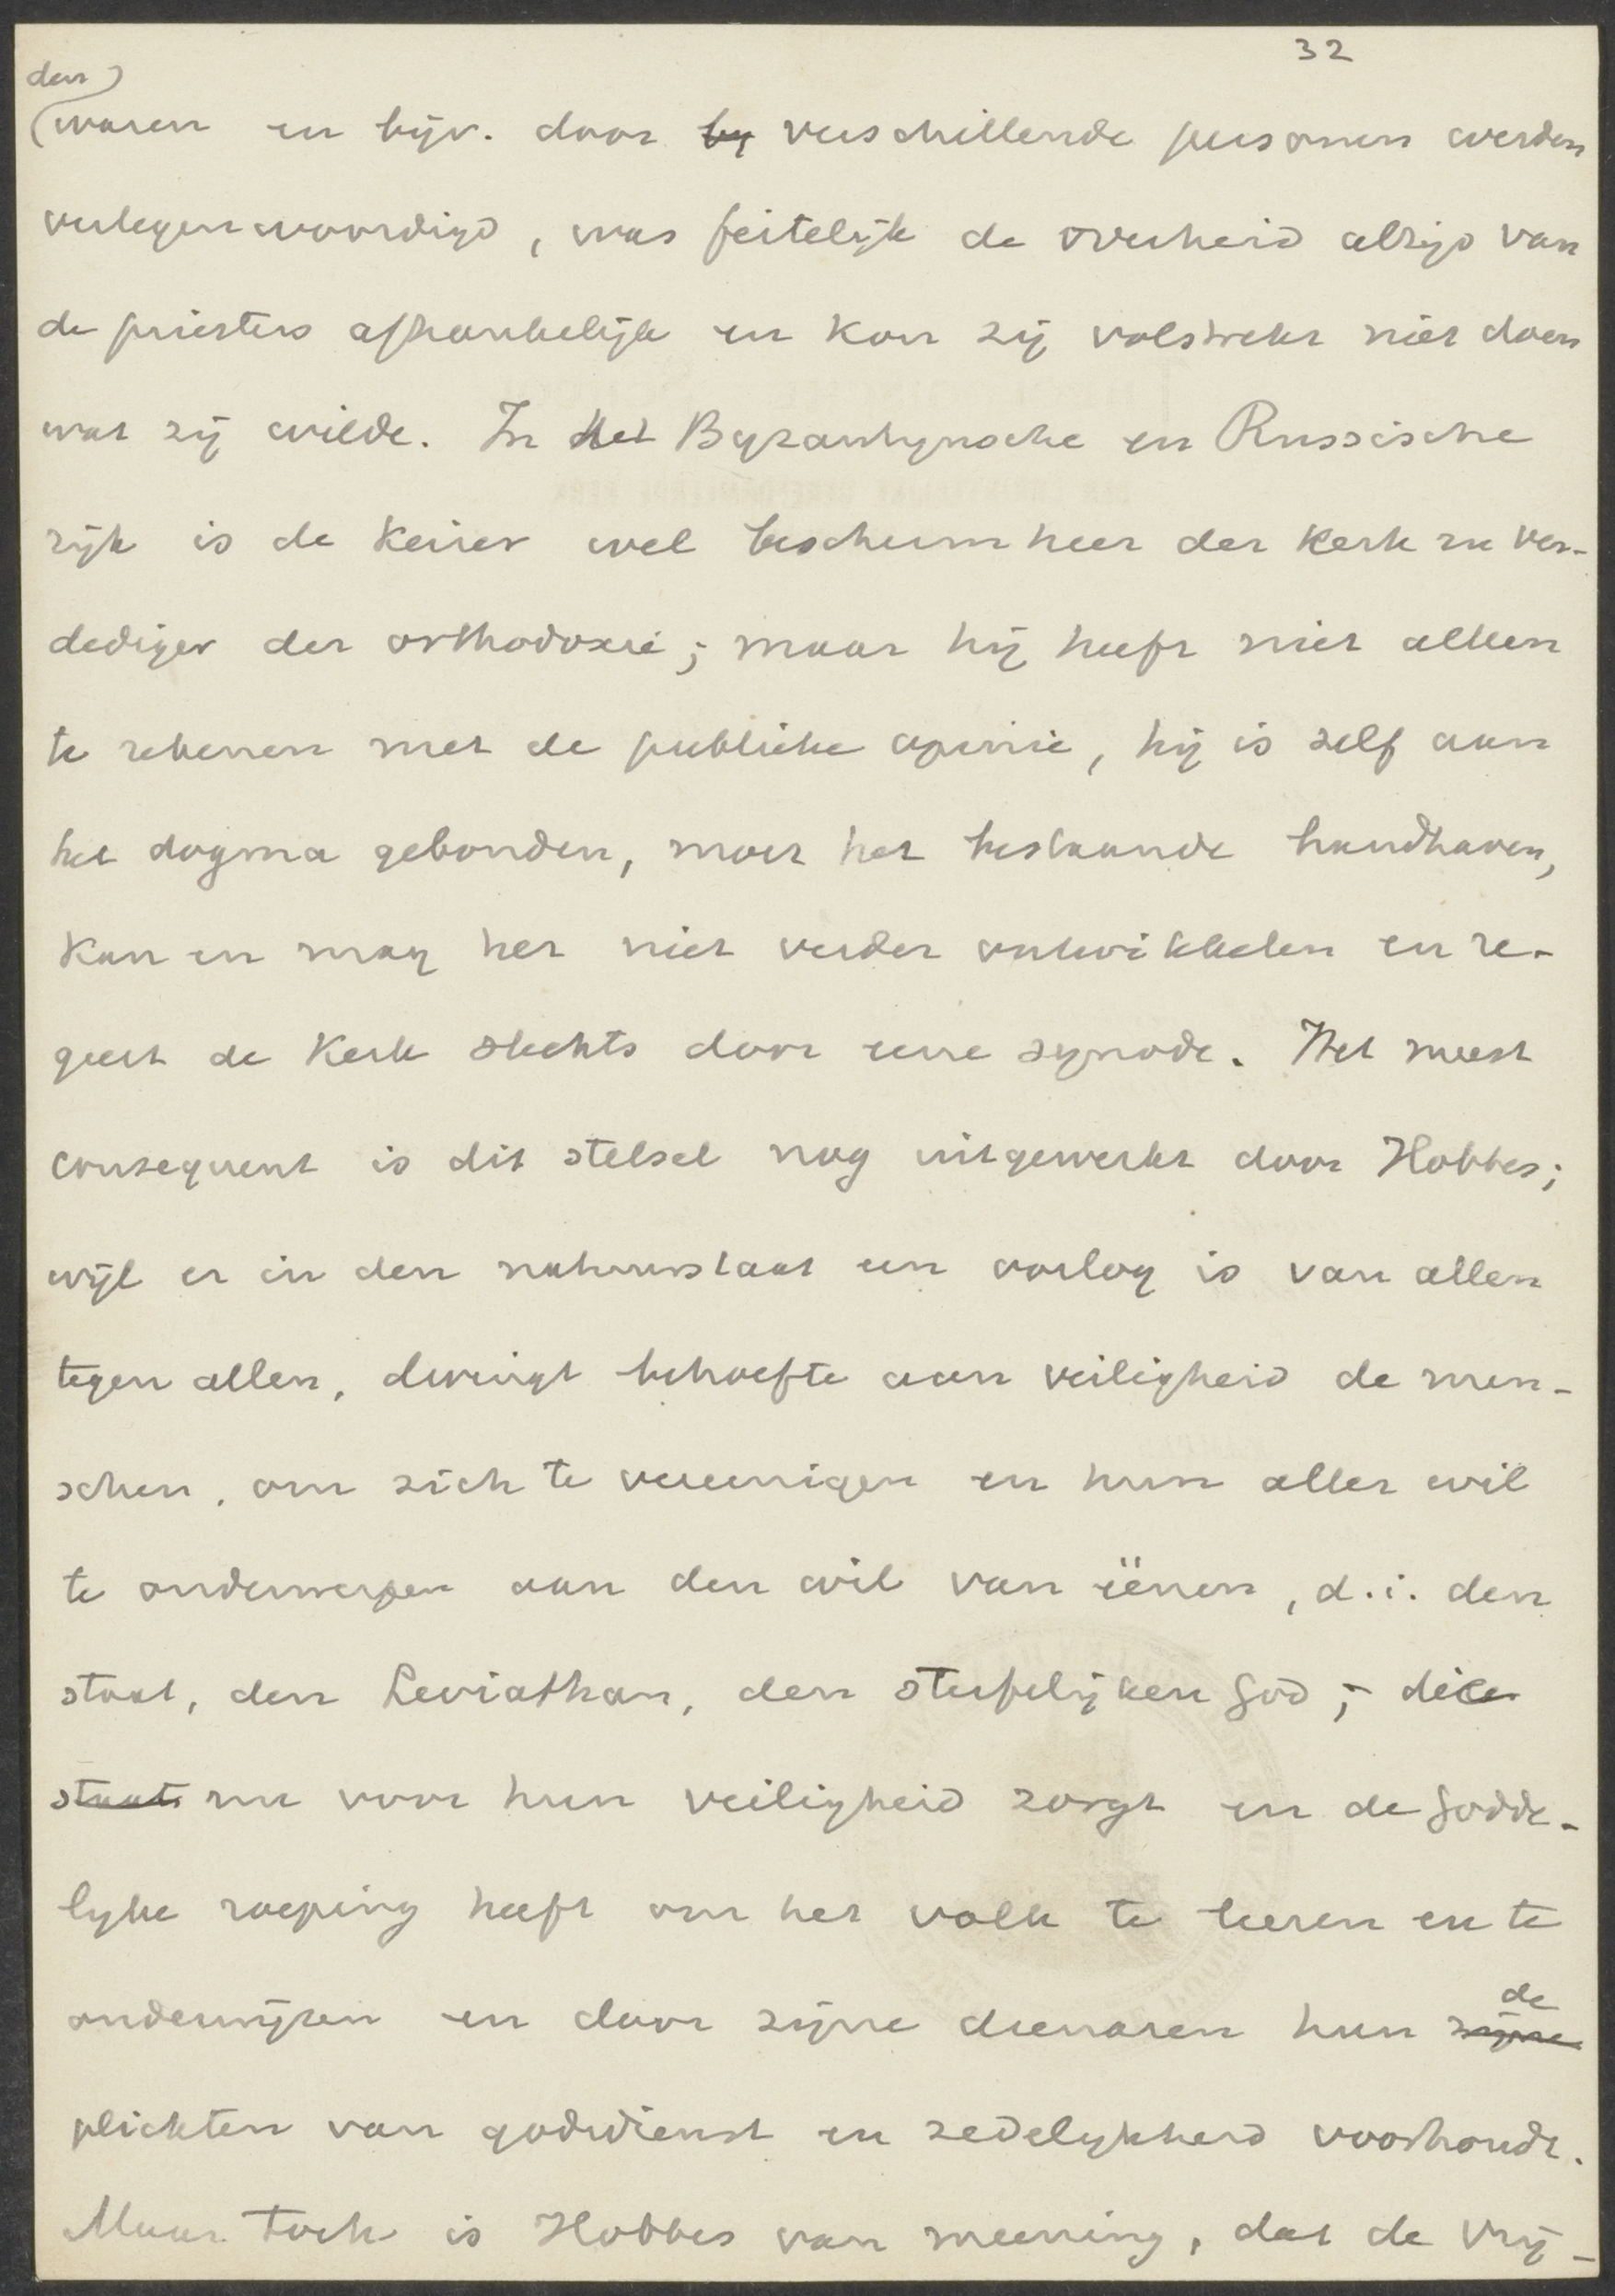 32
den
(waren en bijv. door by verschillende personen werden
vertegenwoordigd, was feitelijk de overheid altijd van
de priesters afhankelijk en kon zij volstrekt niet doen
wat zij wilde. In het Byzantynsche en Russische
rijk is de keizer wel beschermheer der kerk en ver-
dediger der orthodoxie; maar hij heeft niet alleen
te rekenen met de publieke opinie, hij is zelf aan
het dogma gebonden, moet het bestaande handhaven,
kan en mag het niet verder ontwikkelen en re-
geert de Kerk slechts door eene synode. Het meest
consequent is dit stelsel nog uitgewerkt door Hobbes;
wijl er in den natuurstaat een oorlog is van allen
tegen allen, dwingt behoefte aan veiligheid de men-
schen, om zich te vereenigen en hun aller wil
te onderwerpen aan den wil van ëenen, d.i. den
staat, den Leviathan, den sterfelijken God; die
staat nu voor hun veiligheid zorgt en de Godde-
lyke roeping heeft om het volk te leeren en te
onderwijzen en door zijne dienaren hun zijne
de
plichten van godsdienst en zedelykheid voorhoudt.
Maar toch is Hobbes van meening, dat de vrij-